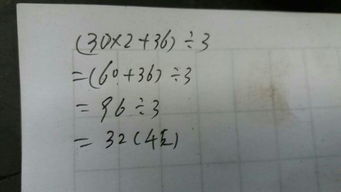 (30×2+36)÷3
=(60+36)÷3
=96÷3
=32(